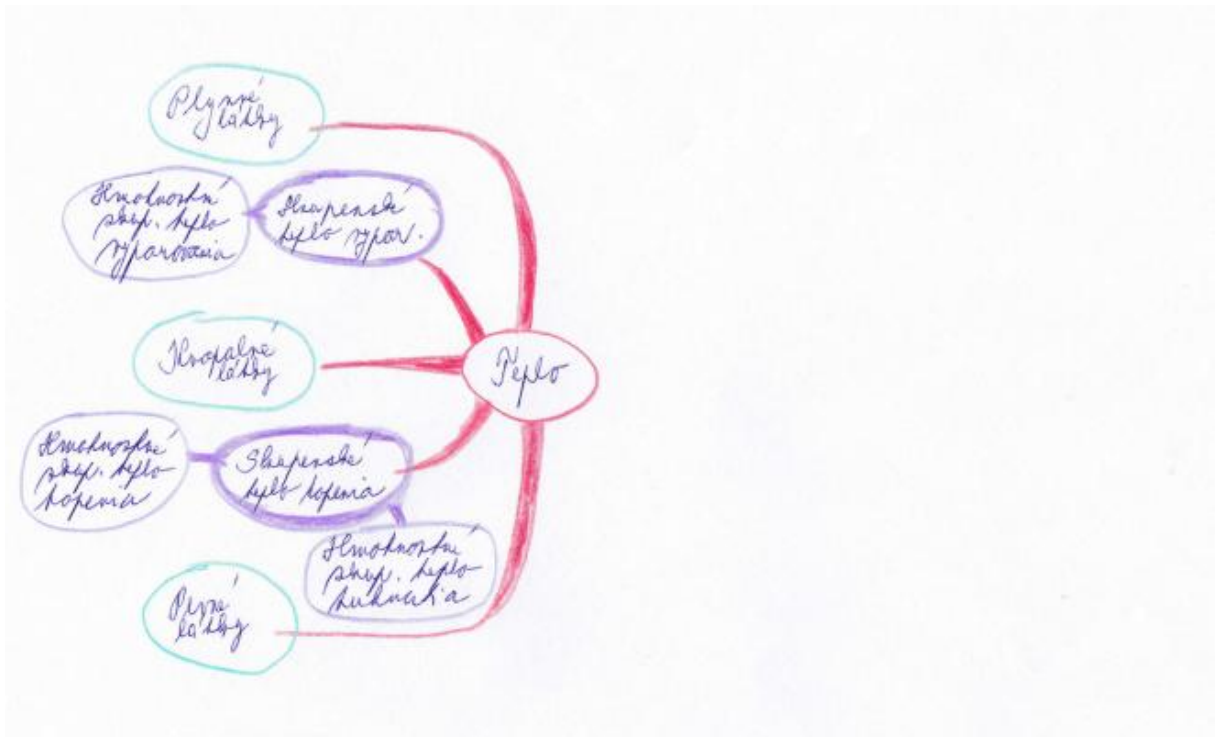 Plynné
látky
Hmotnostné
skup. teplo
vyparovania
Skupenské
teplo vypar.
Kvapalné
látky
Teplo
Hmotnostné
skup. teplo
topenia
Skupenské
teplo topenia
Hmotnostné
skup. teplo
tuhnutia
Pevné
látky